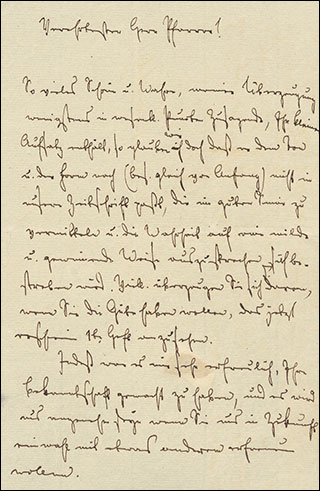 Verehrtester Herr Pfarrer!
So vieles Schöne u. Wahre, meiner Überzeugung
wenigstens in Zusagende, Ihr kleiner
Aufsatz enthält, so glauben wir doch daß er dem Ton
u. der Form nach (bes. gleich von Anfang) nicht in
unsere Zeitschrift paßt, die im guten Sinne zu
vermitteln u. die Wahrheit auf eine milde
u. gewinnende Weise auszusprechen sich be-
streben wird. Vill. überzeugen Sie sich davon,
wenn Sie die Güte haben wollen, das jetzt
Heft anzusehen.
Indeß war es mir sehr erfreulich, Ihre
Bekanntschaft gemacht zu haben, und es wird
uns angenehm seyn wenn Sie uns in Zukunft
einmal mit etwas anderem erfreuen
wollen.